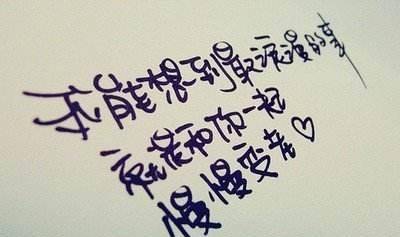 所能想到最浪漫的事
就是和你一起
慢慢变老♡